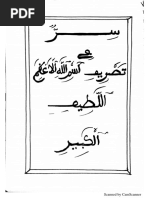 سر
في
تصريف اسم الله الأعظم
اللطيف
الكبير
Scanned by CamScanner